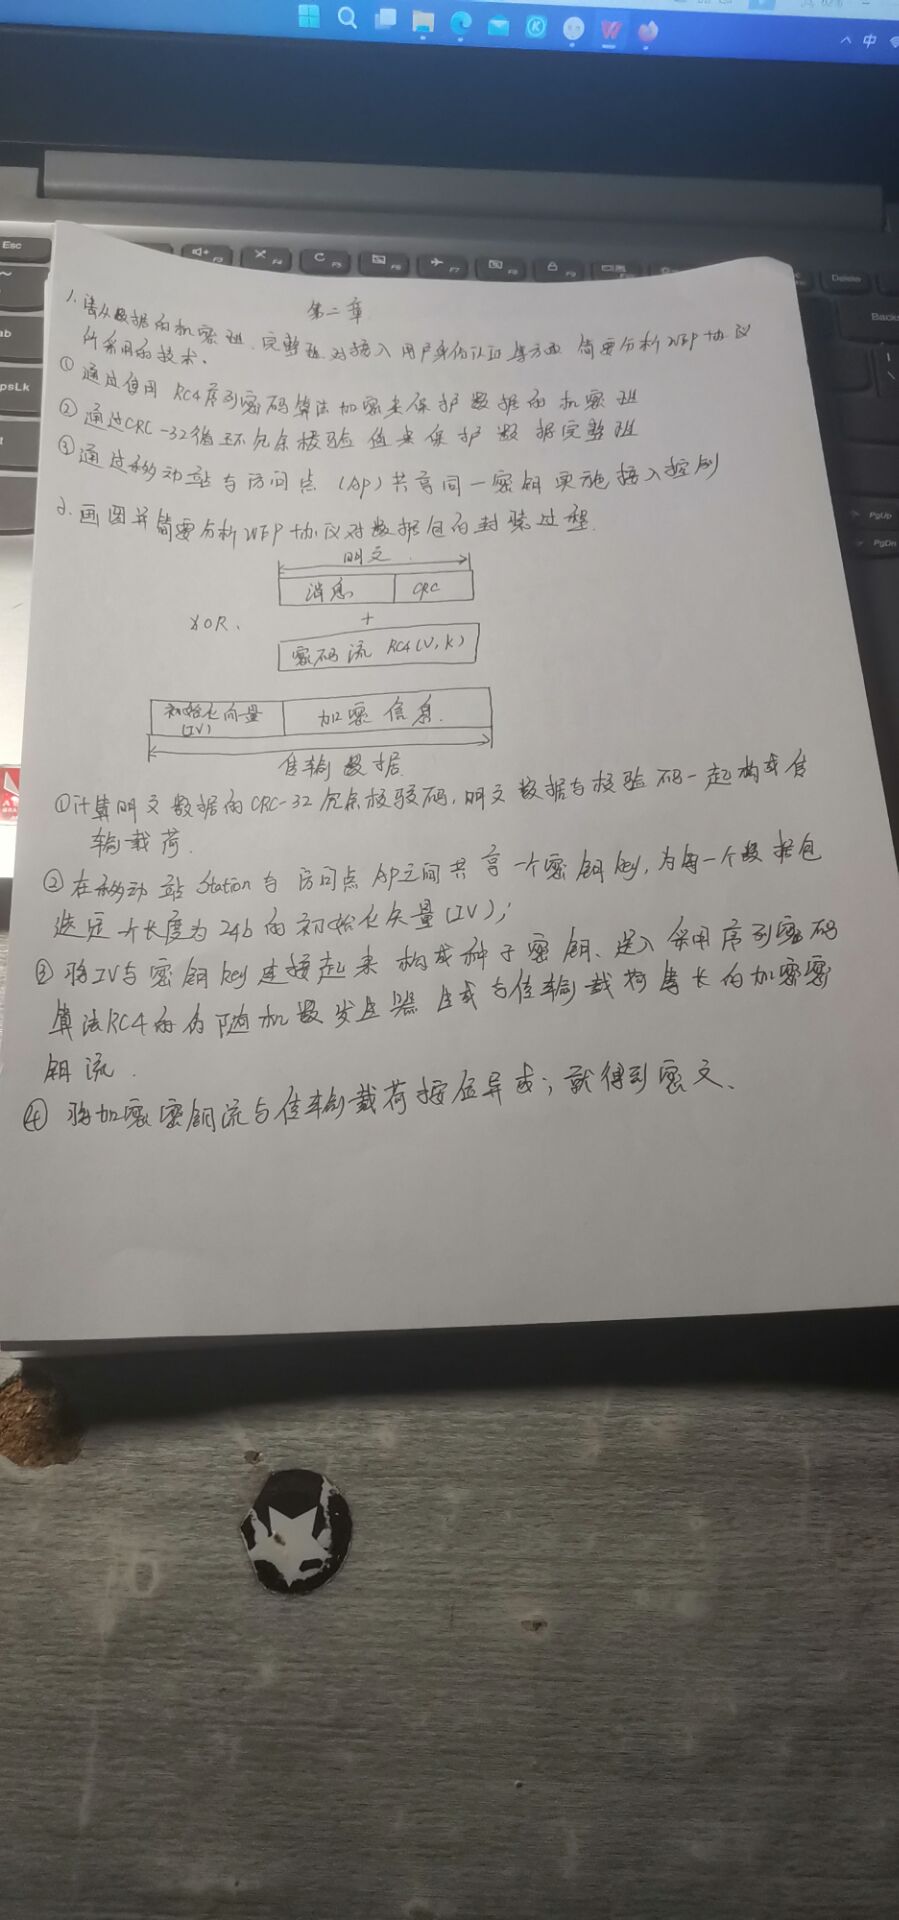 第二章
1. 请从数据的机密性、完整性、对接入用户身份认证等方面 简要分析WEP协议
所采用的技术.
① 通过使用 RC4序列密码算法加密来保护数据的机密性
② 通过CRC-32循环冗余校验值来保护数据完整性
③ 通过移动站与访问点 (AP) 共享同一密钥实施接入控制
2. 画图并简要分析WEP协议对数据包的封装过程.
明文
消息 CRC
XOR. +
密码流 RC4(V,K)
初始化向量 加密信息.
(IV)
传输数据
①计算明文数据的CRC-32冗余校验码,明文数据与校验码一起构成传
输载荷.
② 在移动站Station与访问点AP之间共享一个密钥key,为每一个数据包
选定一个长度为24b的初始化矢量(IV);
③ 将IV与密钥key连接起来构成种子密钥、送入采用序列密码
算法RC4的伪随机数发生器 生成与传输载荷等长的加密密
钥流.
④ 将加密密钥流与传输载荷按位异或;就得到密文、
Esc
F3
F4
F5
F6
F7
F8
F9
Delete
Back
psLk
PgUp
PgDn
中